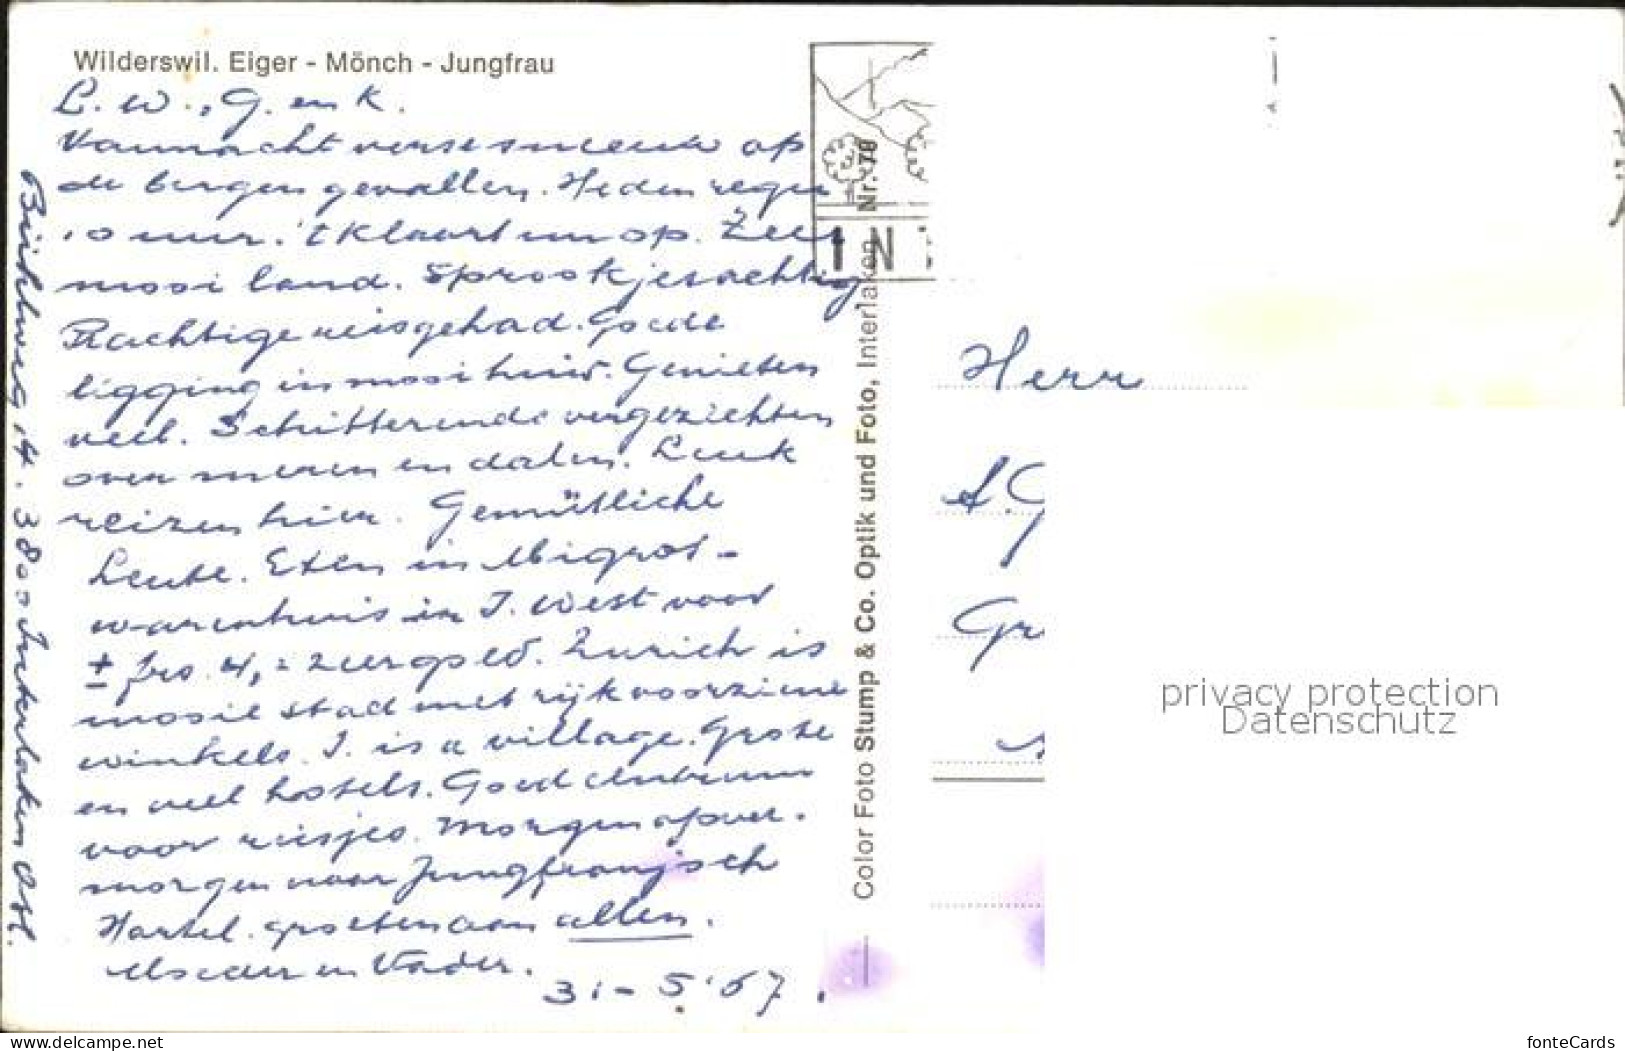 Wilderswil. Eiger - Mönch - Jungfrau
L. W., G. en K.
Vannacht verse sneeuw op
de bergen gevallen. Heden regen
10 uur. 't Klaart nu op. Zeer
mooi land. Sprookjesachtig
Prachtige reis gehad. Goede
ligging in mooi huis. Genieten
veel. Schitterende vergezichten
over meren en dalen. Leuk
reizen hier. Gemütliche
Leute. Eten in Migros-
warenhuis in I. West voor
± frs. 4,= zeer goed. Zurich is
mooie stad met rijk voorziene
winkels. I. is a village. Grote
en veel hotels. Goed centrum
voor reisjes. Morgen of over-
morgen naar Jungfraujoch
Hartel. groeten aan allen.
Moeder en Vader.
31-5-'67.
Bühlweg, 4. 3800 Interlaken Ost.
Color Foto Stump & Co. Optik und Foto, Interlaken Nr. 78
IN
Herr
A. G
Gr
privacy protection
Datenschutz
my-paper.net
fonteCards